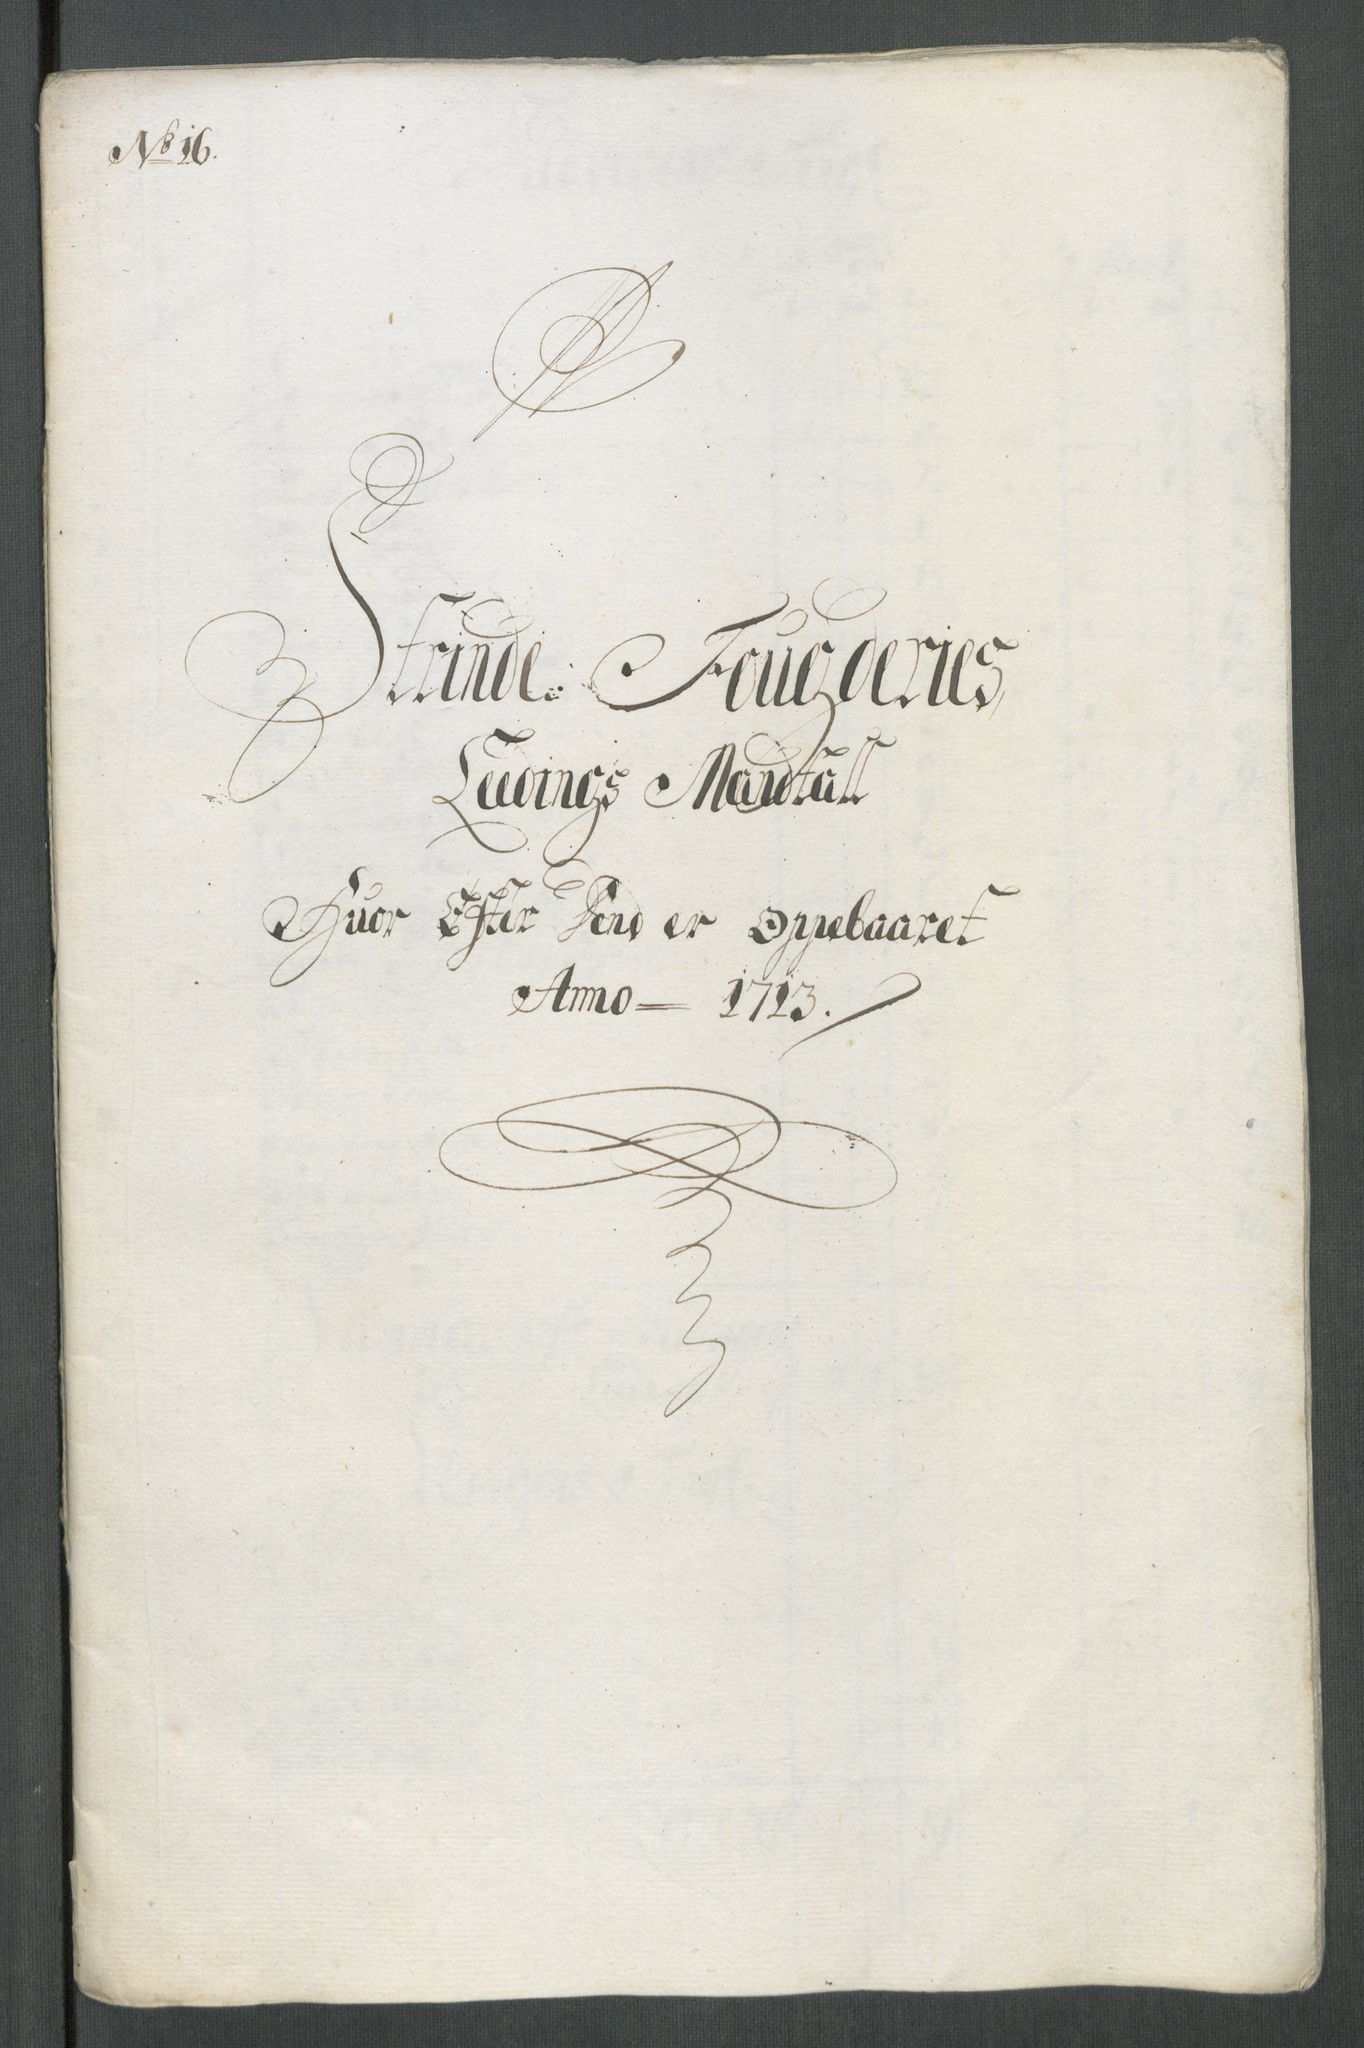 No 16.
Strinde: Fougderies
Ledings Mandtall
Huor Efter Send er Oppebaaret
Anno = 1713.